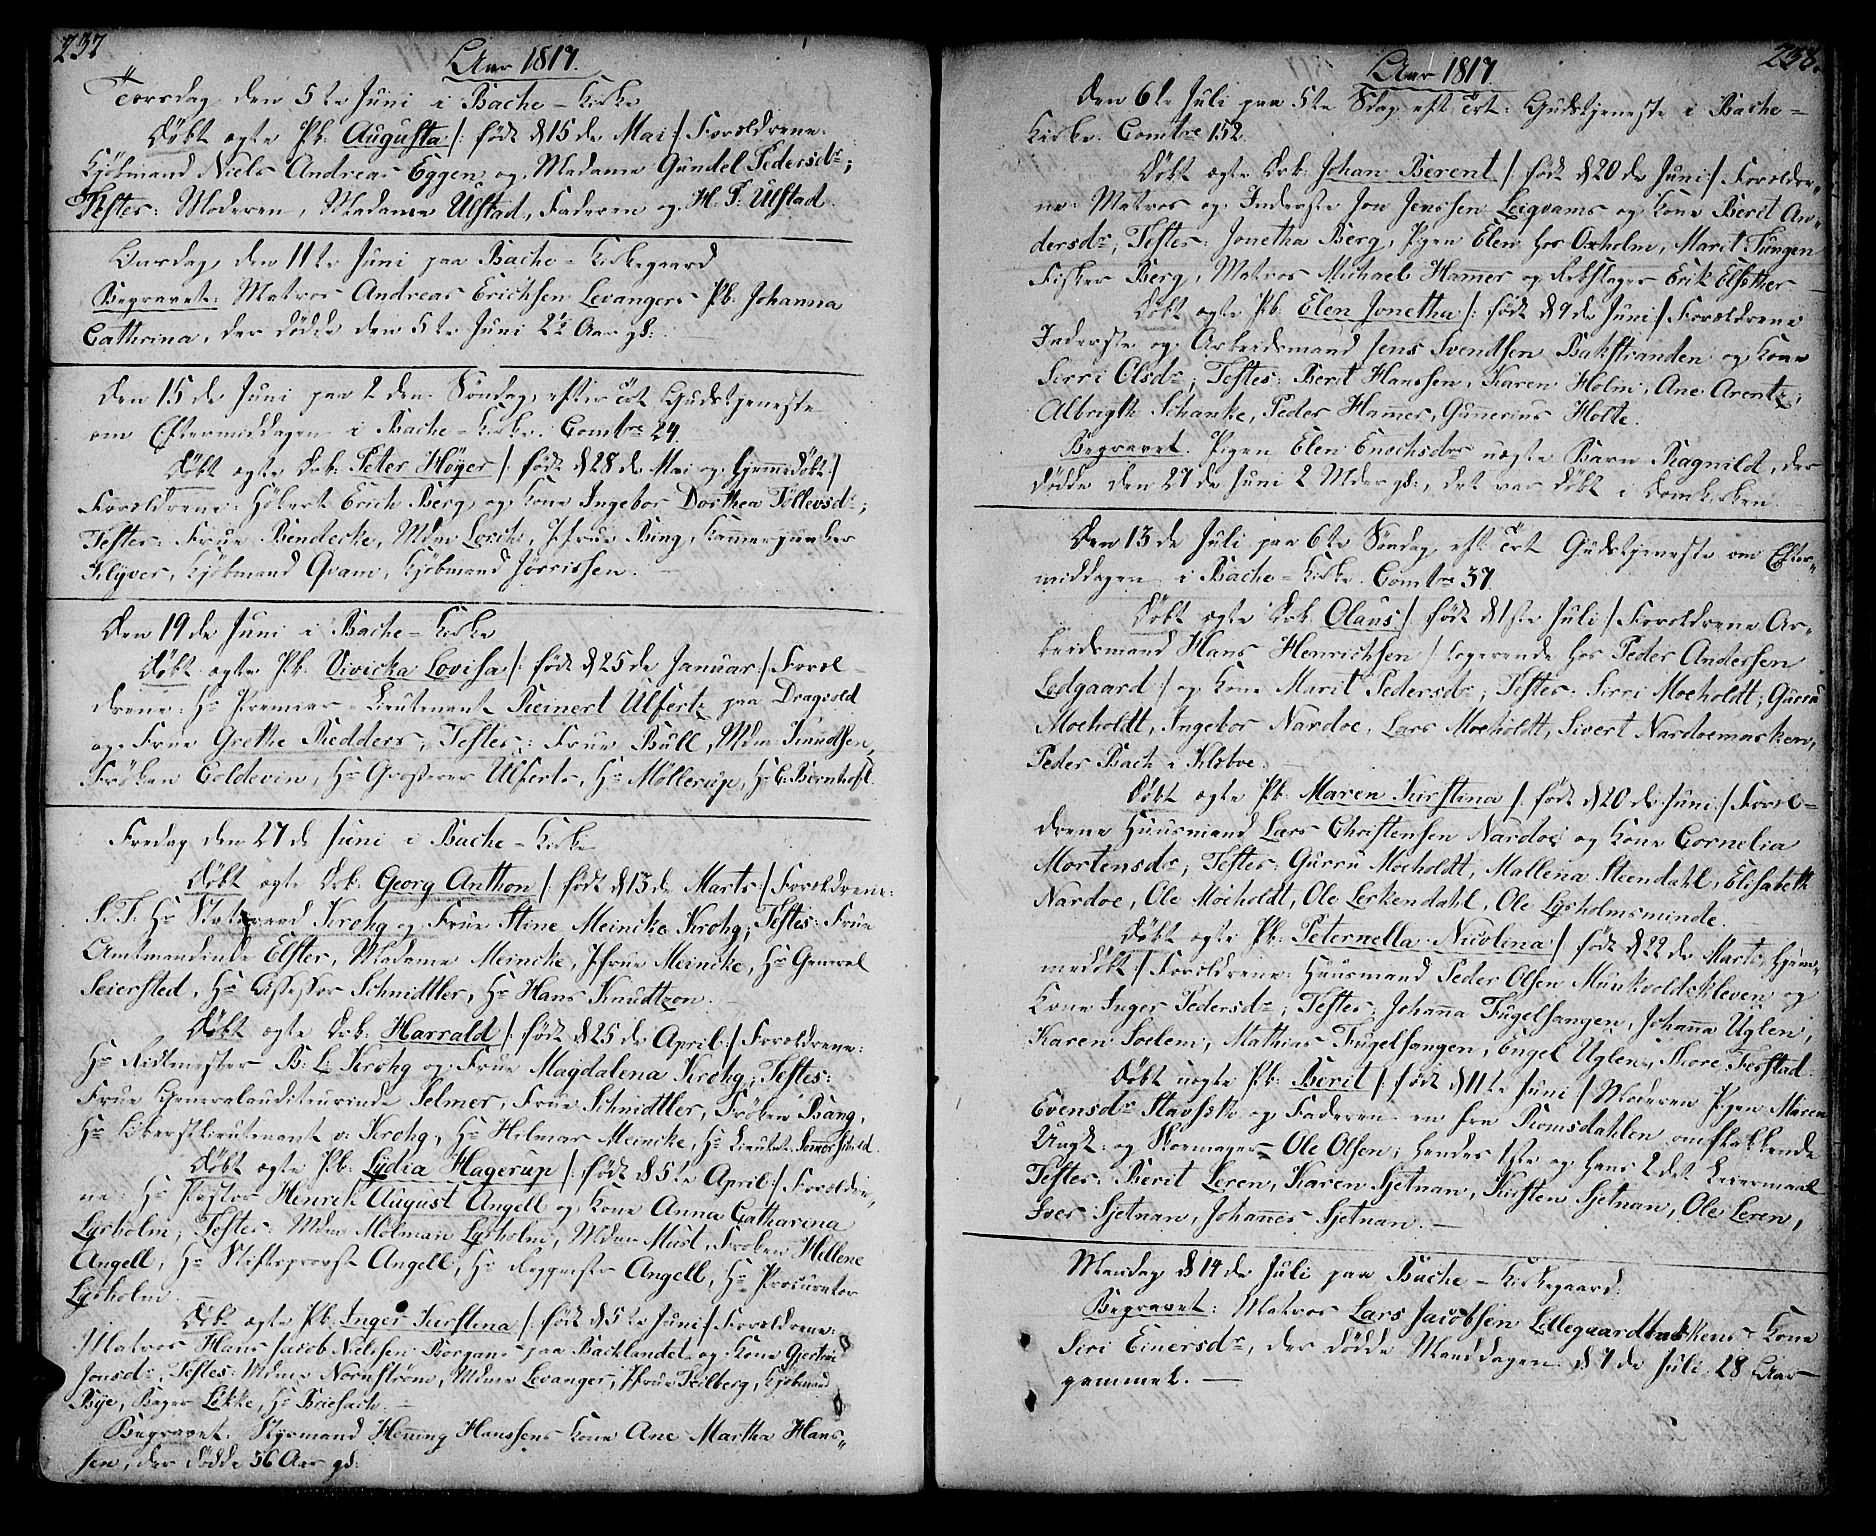 237
Aar 1817.
Torsdag den 5te Juni i Bache-Kirke
Døbt ægte Pb. Augusta /: født d 15de Mai :/ Forældrene:
Kjøbmand Niels Andreas Eggen og Madame Gundel Pedersdr;
Testes: Moderen, Madame Ulstad, Faderen og H. P. Ulstad.
Onsdag den 11te Juni paa Bache-Kirkegaard
Begravet: Matros Andreas Erichsen Levangers Pb. Johanna
Cathrina, der døde den 5te Juni 2½ Aar gl:
Den 15de Juni paa 2den Søndag efter Trt. Gudstjeneste
om Eftermiddagen i Bache-Kirke. Comtre 24.
Døbt ægte Drb. Peter Høyer /: født d 28de Mai og hjemmedøbt :/
Forældrene: Høkert Erich Berg og Kone Ingebor Dorthea Tollevsdr;
Testes: Frue Bendecke, Mdme Lorck, Jfrue Bing, Kammerjunker
Klüver, Kjøbmand Qvam, Kjøbmand Jorrissen.
Den 19de Juni i Bache-Kirke
Døbt ægte Pb. Vivicka Lovisa /: født d 25de Januar :/ Foræl-
drene: Hr Premier-Lieutenant Reinert Ulfertz paa Dragvold
og Frue Grethe Redders; Testes: Frue Bull, Mdme Knudtsen,
Frøken Coldevin, Hr Grosserer Ulferts, Hr Møllerup, Hr C. Bernhoft.
Fredag den 27de Juni i Bache-Kirke
Døbt ægte Drb. Georg Anthon /: født d 13de Marts :/ Forældrene:
S. T. Hr Statsraad Krohg og Frue Stine Meincke Krohg; Testes: Frue
Amtmandinde Elster, Madame Meincke, Jfrue Meincke, Hr General
Seiersted, Hr Assessor Schnidtler, Hr Hans Knudtzon.
Døbt ægte Drb. Harrald /: født d 25de April :/ Forældrene:
Hr Ridtmester B: L. Krohg og Frue Magdalena Krohg; Testes:
Frue Generalauditeurinde Selmer, Frue Schnidtler, Frøken Bang,
Hr Oberstlieutenant v: Krohg, Hr Hilmar Meincke, Hr Lieutnt Sommerschield.
Døbt ægte Pb. Lydia Hagerup /: født d 5te April :/ Forældre-
ne: Hr Pastor Henrich August Angell og Kone Anna Catharina
Lysholm; Testes: Mdme Molman Lysholm, Mdme Must, Frøken Hellene
Angell, Hr Stiftsprovst Angell, Hr Angell, Hr Procurator
Lysholm.
Døbt ægte Pb. Inger Kirstina /: født d 5te Juni :/ Forældrene:
Matros Hans Jacob Nielsen Borgan paa Backlandet og Kone Gjertrue
Jonsdr; Testes: Mdme Nornstrøm, Mdme Levanger, Jfrue Keilberg, Kjøbmand
Bye, Bager Løkke, Hr Briesach.
Begravet: Styrmand Henning Hanssens Kone Ane Martha Hans-
sen, der døde 56 Aar gl:
238.
Aar 1817
Den 6te Juli paa 5te Sdag eft Trt: Gudstjeneste i Bache-
Kirke. Comtre 152.
Døbt ægte Drb. Johan Berent /: født d 20de Juni :/ Forældre-
ne: Matros og Inderste Jon Jenssen Leigvams og Kone Berit An-
dersdr; Testes: Jonetha Berg, Pigen Elen hos Oxholm, Marit Tungen
Fisker Berg, Matros Michael Hammer og Rebslager Erik Elsether
Døbt ægte Pb. Elen Jonetha /: født d 9de Juni :/ Forældrene
Inderste og Arbeidsmand Jens Svendsen Bakstranden og Kone
Sirri Olsdr; Testes: Berit Hanssen, Karen Holm, Ane Arentz,
Albrigth Schanke, Peder Hammer, Gunerius Holte.
Begravet. Pigen Elen Enochsdrs uægte Barn Ragnild, der
døde den 27de Juni 2 Mdr gl:, det var døbt i Domkirken.
Den 13de Juli paa 6te Søndag eft Trt Gudstjeneste om Efter-
middagen i Bache-Kirke. Comtre 37
Døbt ægte Drb. Olaus /: født d 1ste Juli :/ Forældrene Ar-
beidsmand Hans Henrichsen /: logerende hos Peder Andersen
Ledgaard :/ og Kone Marit Pedersdr; Testes: Sirri Moeholdt, Gurru
Moeholdt, Ingebor Nardoe, Lars Moeholdt, Sivert Nardoemarken,
Peder Bach i Klæboe.
Døbt ægte Pb. Maren Kirstina /: født d 20de Juni :/ Foræl-
drene Huusmand Lars Christensen Nardoe og Kone Cornelia
Mortensdr; Testes: Gurru Moeholdt, Mallena Steendahl, Elisabeth
Nardoe, Ole Moeholdt, Ole Lerkendahl, Ole Lysholmsminde.
Døbt ægte Pb. Peternella Nicolina /: født d 22de Marts, hjem-
medøbt :/ Forældrene: Huusmand Peder Olsen Munkvoldskleven og
Kone Inger Pedersdr; Testes: Johanna Fugelsangen, Johanna Uglen,
Karen Soelem, Mathias Fugelsangen, Engel Uglen, Thore Forstad.
Døbt uægte Pb. Berit /: født d 11te Juni :/ Moderen Pigen Maren
Evensdr Stavsk og Faderen en fra Romsdahlen omflakkende
Ungk: og Skomager Ole Olsen; hendes 1ste og hans 2det Leiermaal
Testes: Berit Leren, Karen Sjetnan, Kirsten Sjetnan, Ole Leren,
Iver Sjetnan, Johannes Sjetnan.
Mandag d 14de Juli paa Bache-Kirkegaard:
Begravet: Matros Lars Jacobsen Lillegaardbakkens Kone
Siri Einersdr, der døde Manddagen d 7de Juli 28 Aar
gammel.